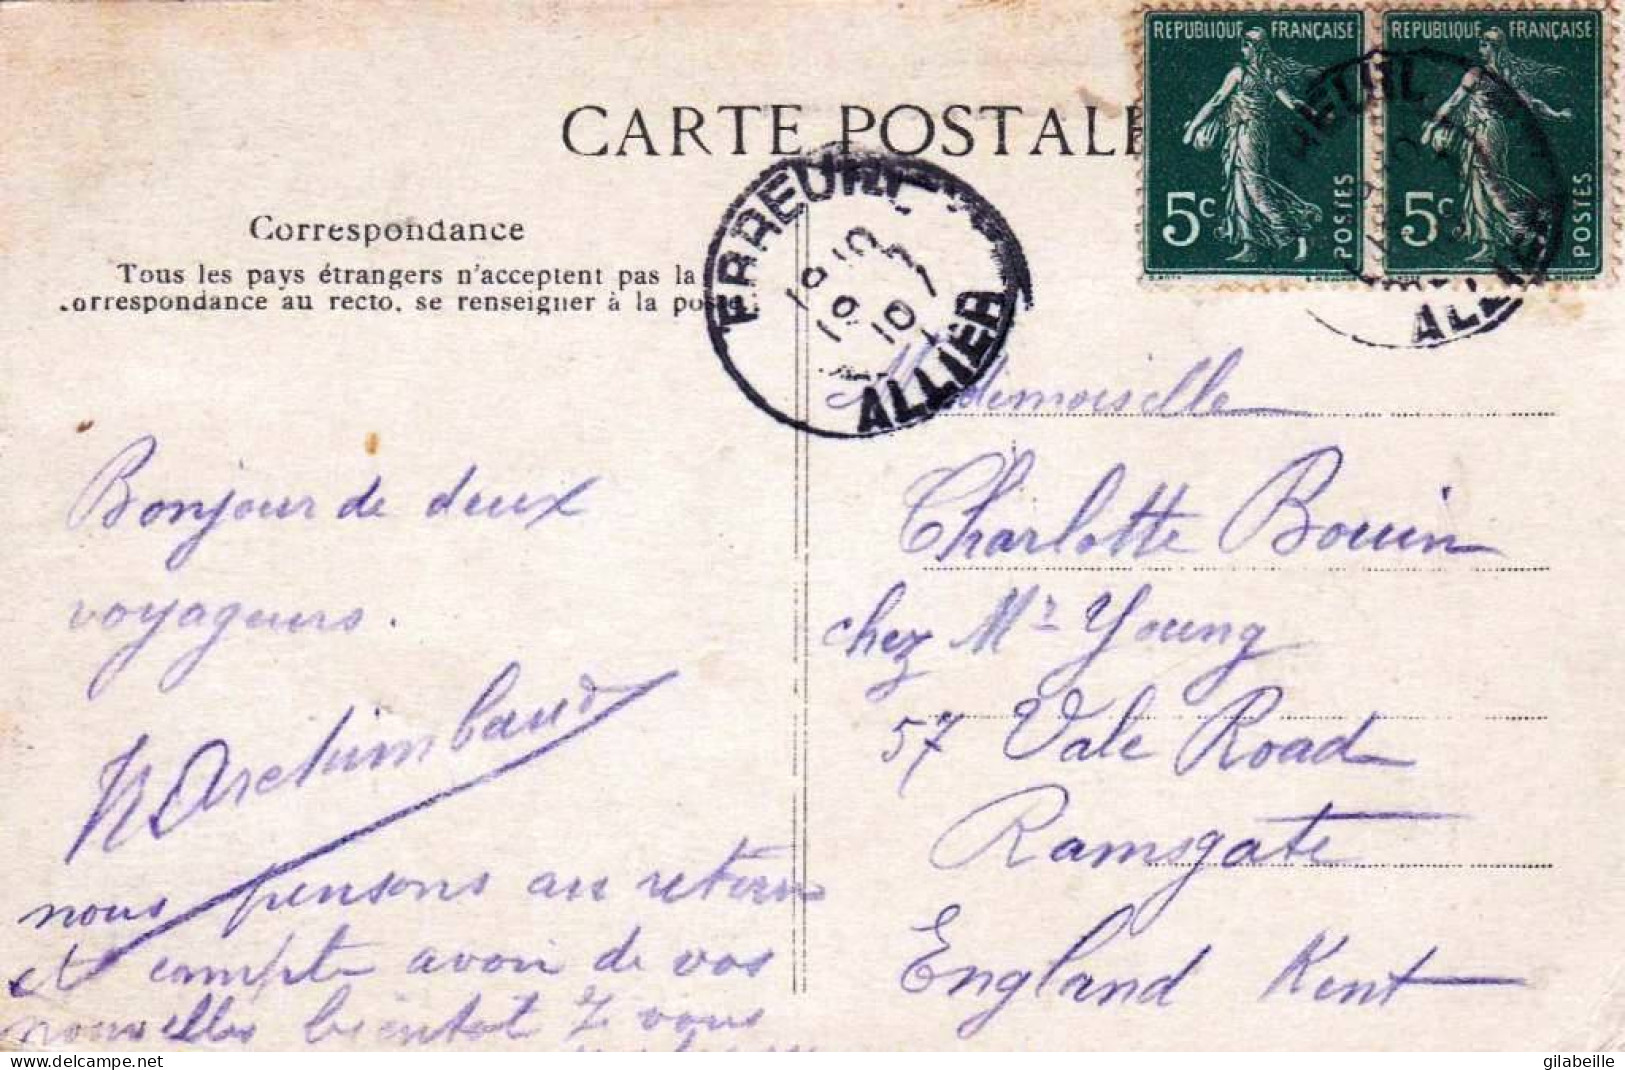 CARTE POSTALE
REPUBLIQUE FRANÇAISE
5c
POSTES
REPUBLIQUE FRANÇAISE
5c
POSTES
Correspondance
Tous les pays étrangers n'acceptent pas la
correspondance au recto, se renseigner à la poste
ALLIER
ALLIER
Mademoiselle
Charlotte Bouin
chez Mr Young
57 Vale Road
Ramsgate
England Kent
Bonjour de deux
voyageurs.
Archimbaud
nous pensons au retour
et compte avoir de vos
nouvelles bientot
vous
gilabeille